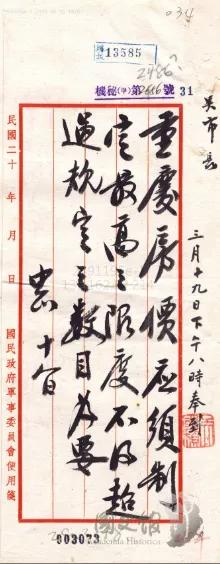 034
13585
2486
機秘(甲)第2686號 31
吳市長
重慶房價應須制
定最高之限度不得超
過規定之數目為要
中正 十九
三月十九日下午八時奉到
民國二十 年 月 日
國民政府軍事委員會便用箋
003073
國史館
Academia Historica